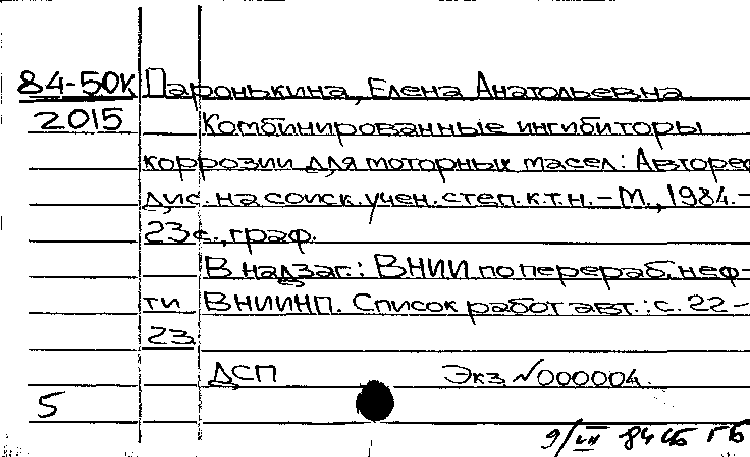 84-50К Паронькина, Елена Анатольевна
2015 Комбинированные ингибиторы
коррозии для моторных масел: Автореф
дис. на соиск. учен. степ. к.т.н. – М., 1984. –
23 с., граф.
В надзаг.: ВНИИ по перераб. неф-
ти ВНИИНП. Список работ авт.: с. 22 –
23.
ДСП Экз. №000004.
5
9/VII 84 СБ ГБ